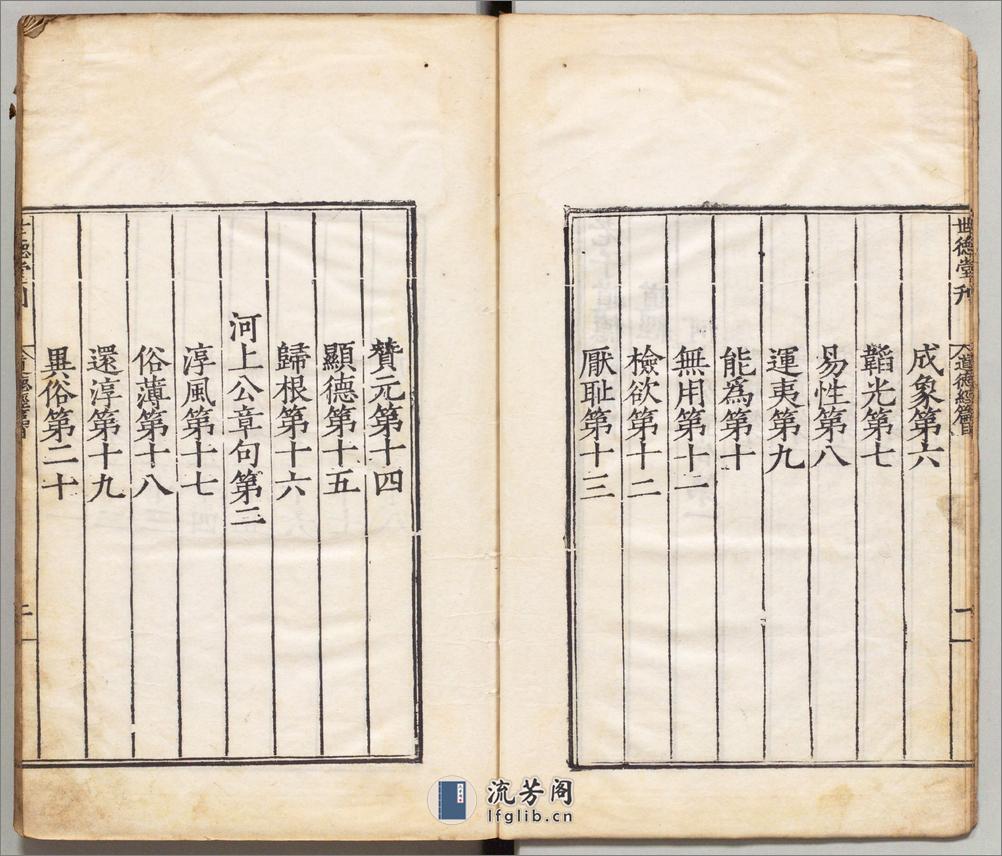 世德堂刊
道德經篇目
一
成象第六
韜光第七
易性第八
運夷第九
能爲第十
無用第十一
檢欲第十二
厭耻第十三
贊元第十四
顯德第十五
歸根第十六
河上公章句第二
淳風第十七
俗薄第十八
還淳第十九
異俗第二十
世德堂刊
道德經篇目
二
流芳阁
lfglib.cn